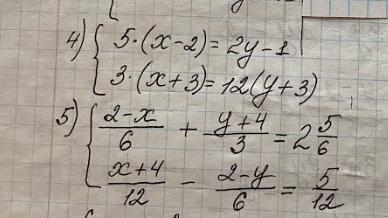 4) { 5·(x-2)=2y-1
3·(x+3)=12(y+3)
5) { (2-x)/6 + (y+4)/3 = 2 5/6
(x+4)/12 - (2-y)/6 = 5/12